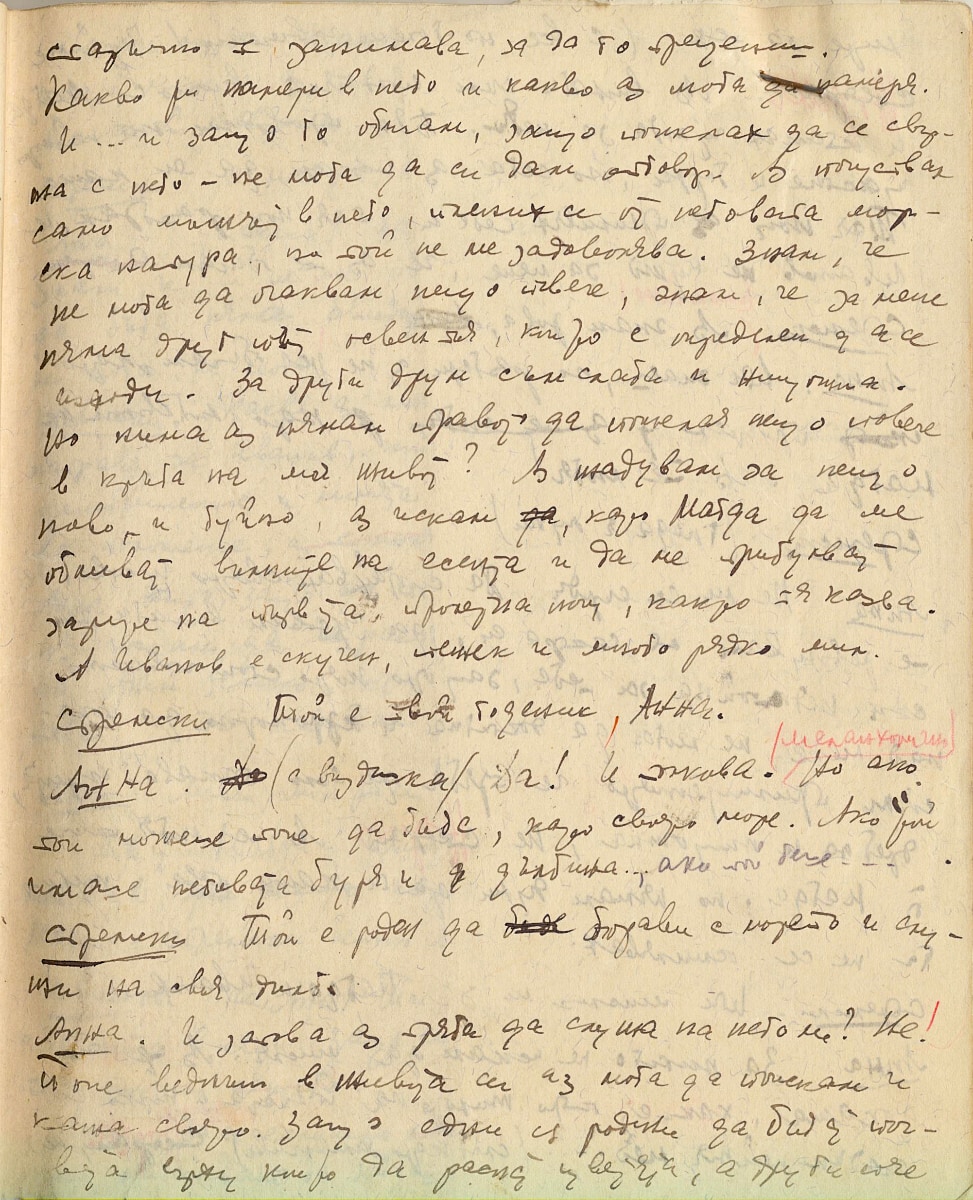 занимава, за да го
Какво ти намери в него и какво аз мога да намеря.
И ... и защо го обичам, защо пожелах да се свър-
жа с него – не мога да си дам отговор. Аз почуствах
само мъжът в него, плених се от неговата мор-
ска натура, но той не ме задоволява. Зная, че
не мога да очаквам нещо повече, зная, че за мене
няма друг път освен тоя, който е определен да се
изходи. За други друм съм слаба и нищожна.
Но нима аз нямам правото да пожелая нещо повече
в кръга на моя живот? Аз жадувам за нещо
ново, и буйно, аз искам да, като Магда да ме
обливат вълните на есента и да не
на първата, пролетна нощ, както тя казва.
А Иванов е скучен, тежек и много рядко мил.
Стремски Той е твой годеник, Анна.
(меланхолично)
Анна. Да (с въздишка) Да! И такова. Но ако
той можеше поне да бъде, като своето море. Ако той
имаше неговата буря и дълбина.., ако той беше - - -
Стремски Той е роден да бъде борави с морето и слу-
жи на своя дълг.
Анна. И затова аз трябва да служа на него ли? Не!
Поне веднъж в живота си аз мога да поискам и
нещо свое. Защо едни са родени да бъдат поч-
вата върху която да растат цветята, а други поче